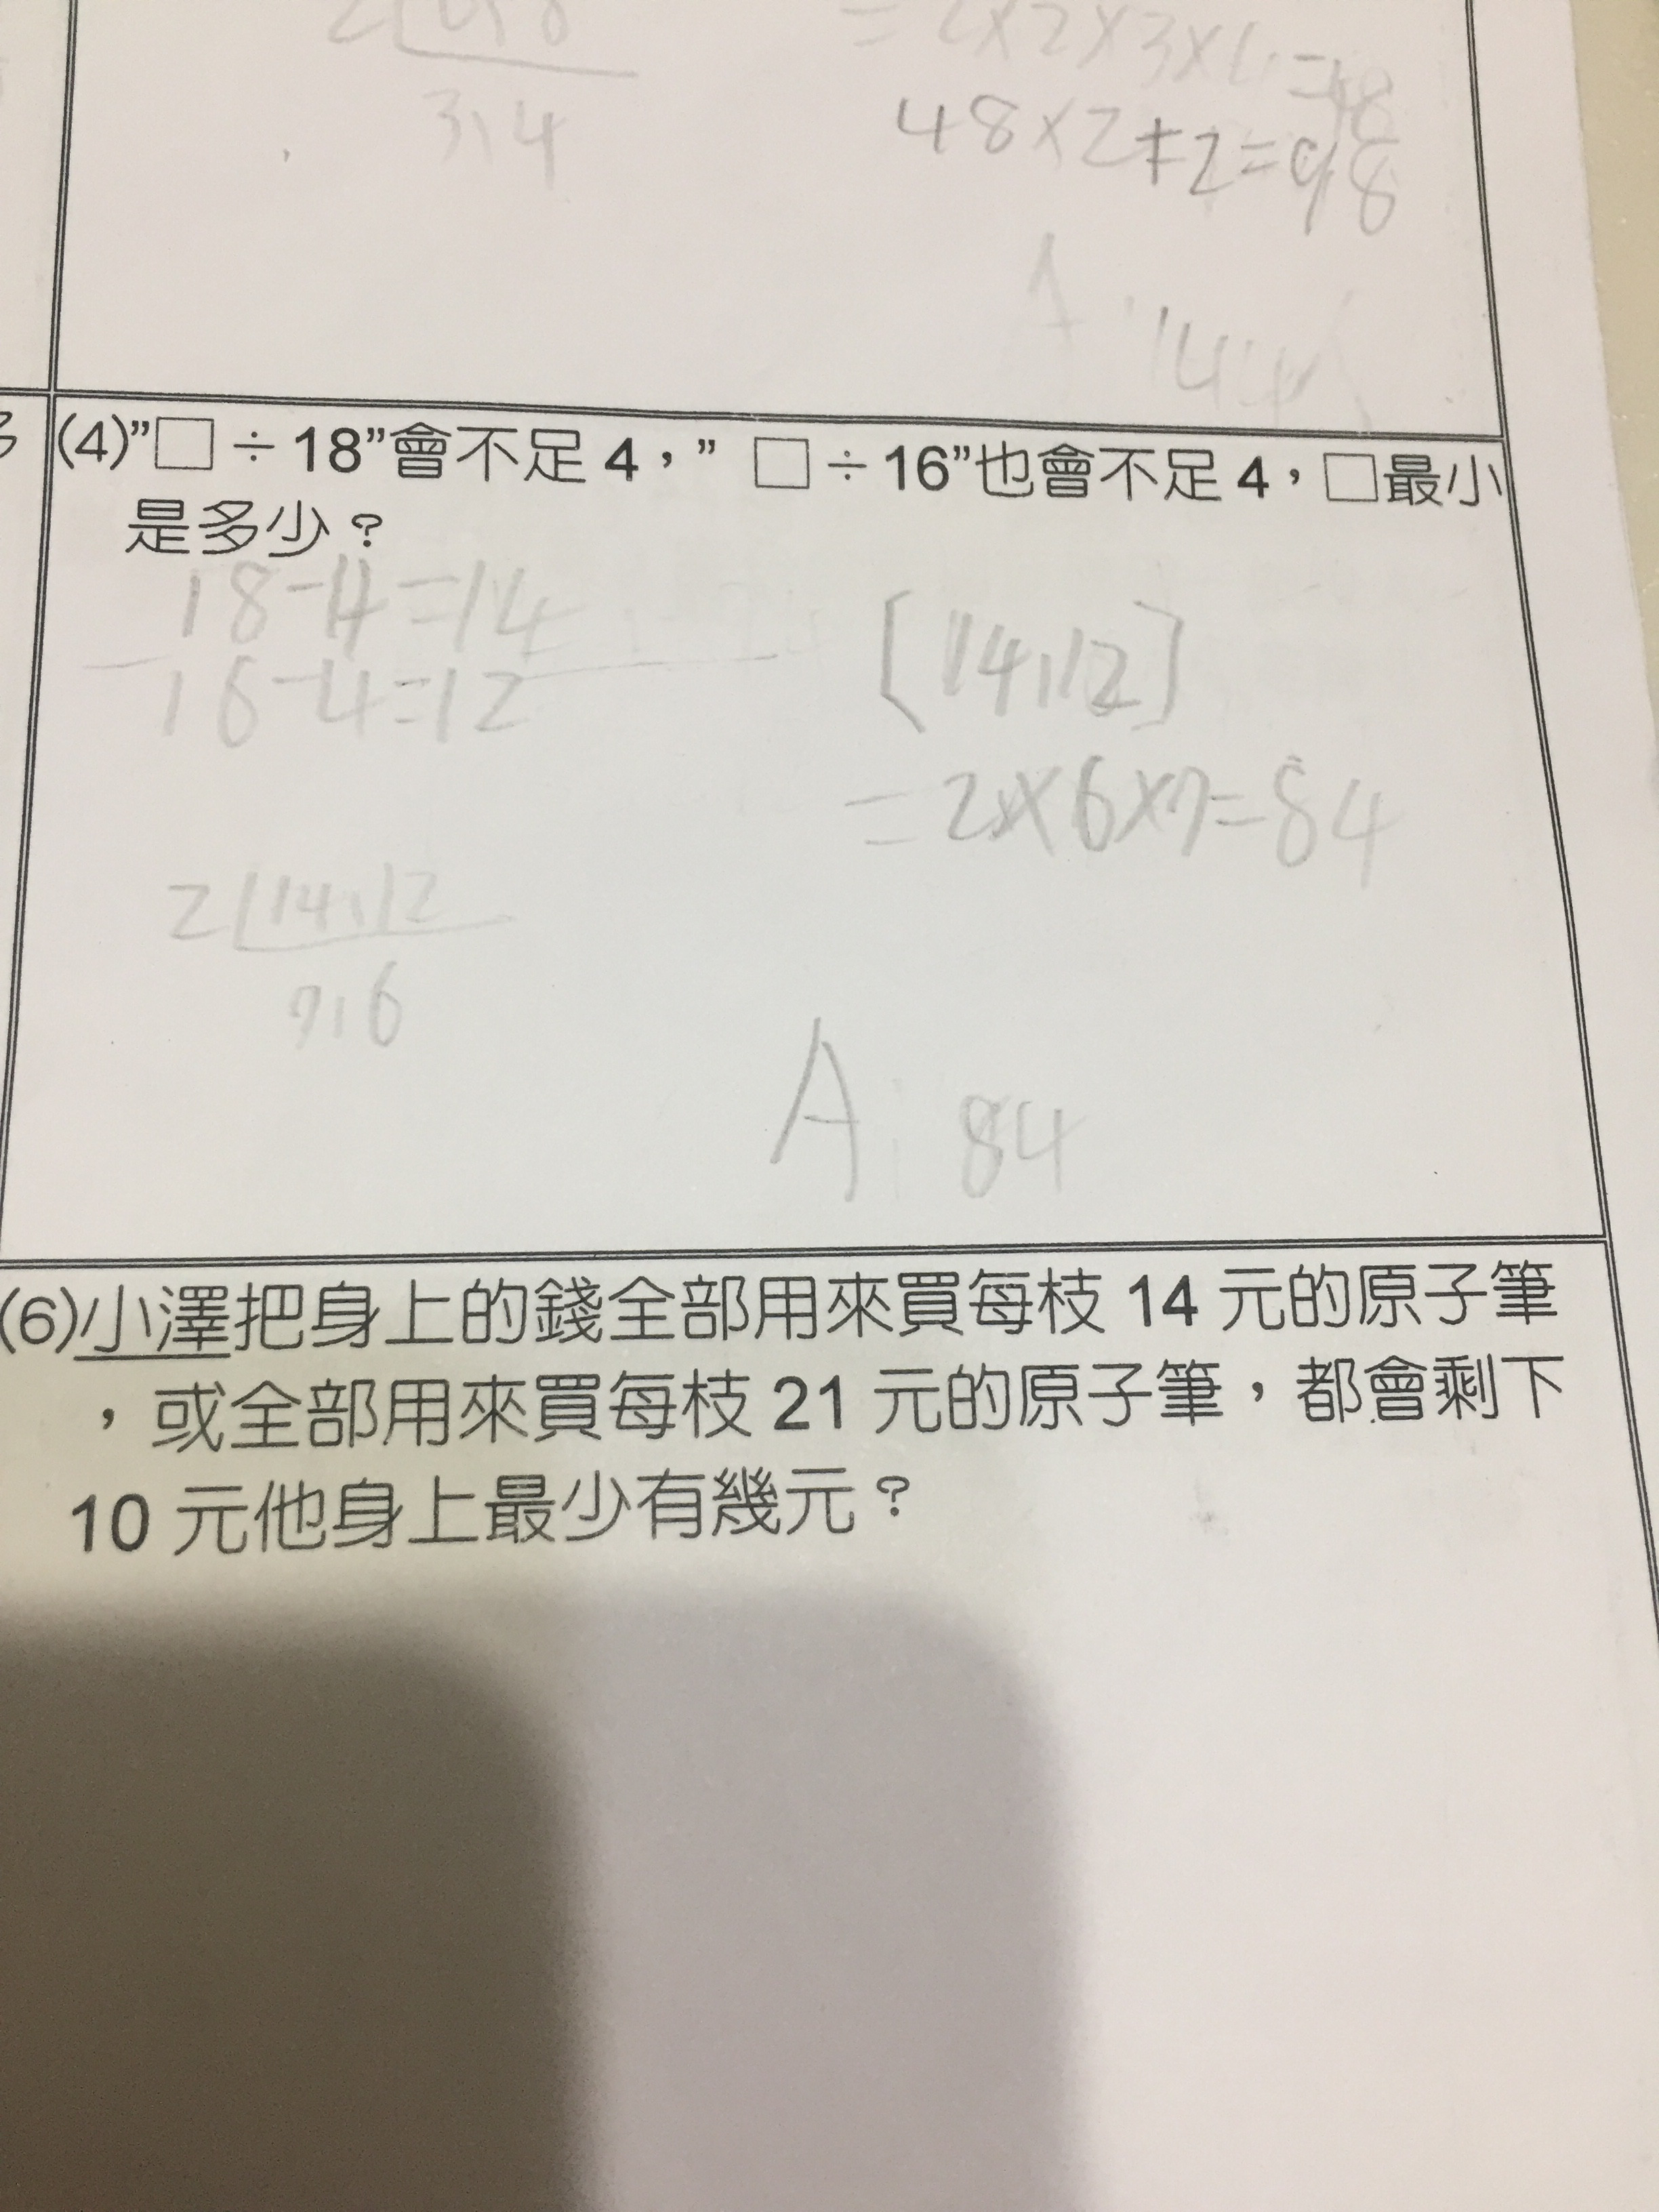 3,4
48×2+2=98
(4)”□÷18”會不足 4，” □÷16”也會不足 4，□最小
是多少？
18-4=14
16-4=12
[14,12]
=2×6×7=84
2 14,12
7,6
A: 84
(6)小澤把身上的錢全部用來買每枝 14 元的原子筆
，或全部用來買每枝 21 元的原子筆，都會剩下
10 元他身上最少有幾元？